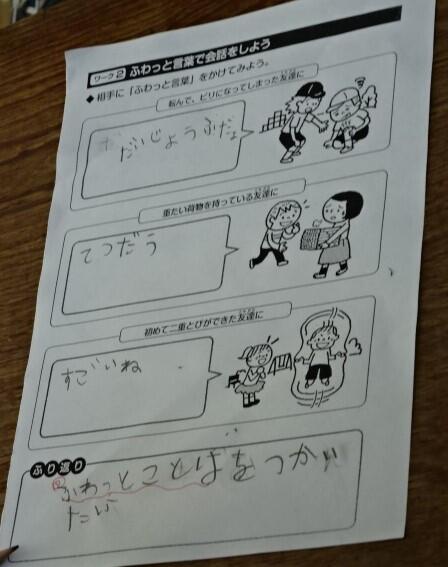 ワーク2 ふわっと言葉で会話をしよう
◆相手に「ふわっと言葉」をかけてみよう。
転んで、ビリになってしまった友達に
だいじょうぶだよ
重たい荷物を持っている友達に
てつだう
初めて二重とびができた友達に
すごいね
ふり返り
ふわっとことばをつかい
たい